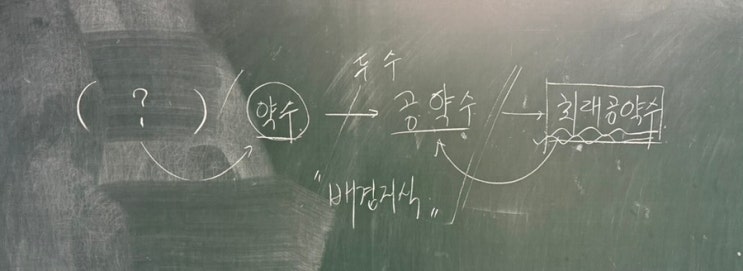 두 수
( ? ) / 약수 → 공약수 → 최대공약수
"배경지식"